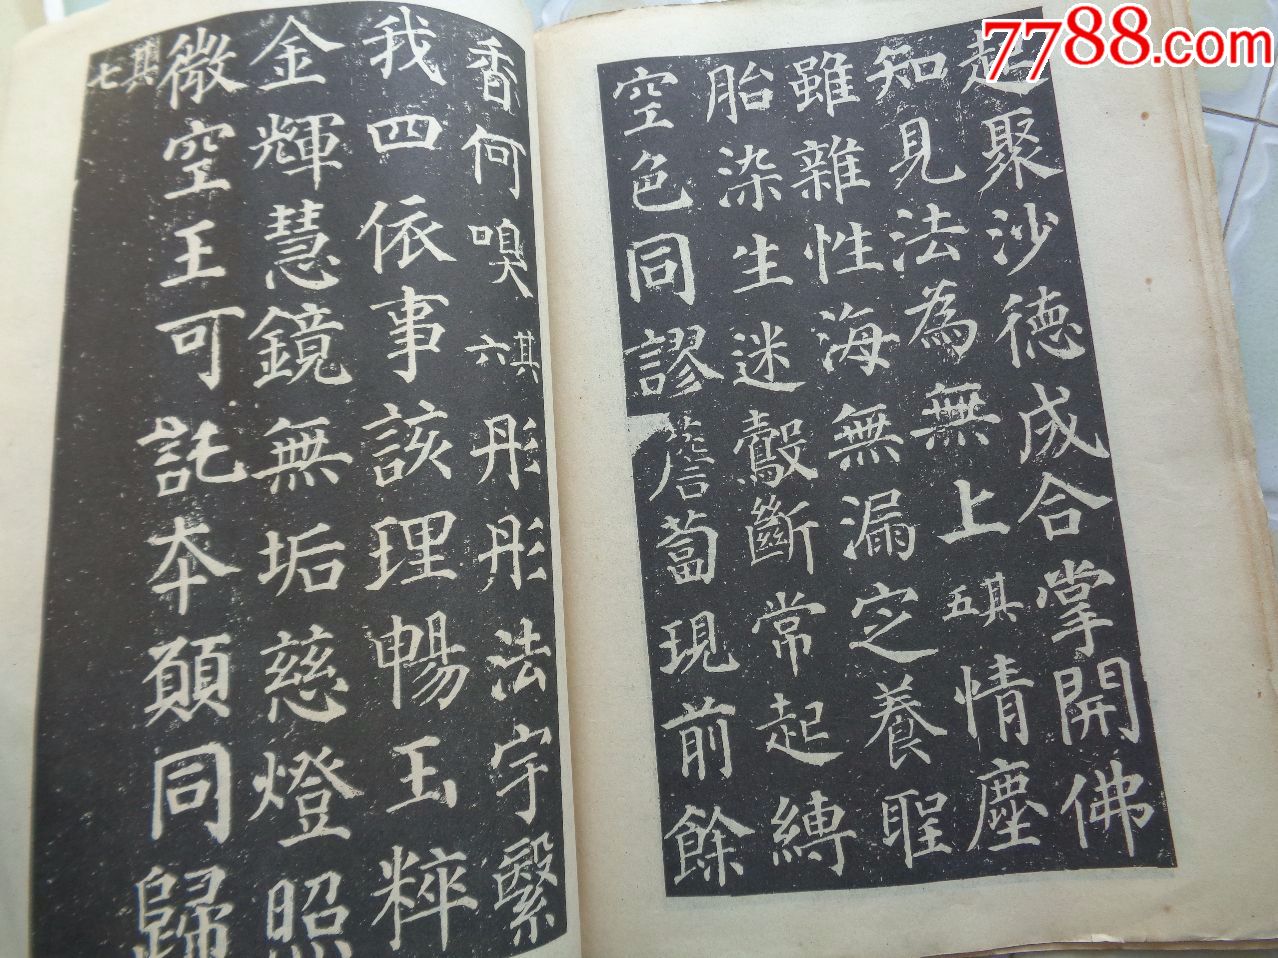 7788.com
起聚沙德成合掌開佛
知見法為無上其五情塵
雖雜性海無漏定養聖
胎染生迷鷇斷常起縛
空色同謬薝蔔現前餘
香何嗅其六彤彤法宇繄
我四依事該理暢玉粹
金輝慧鏡無垢慈燈照
微空王可託本願同歸
其七